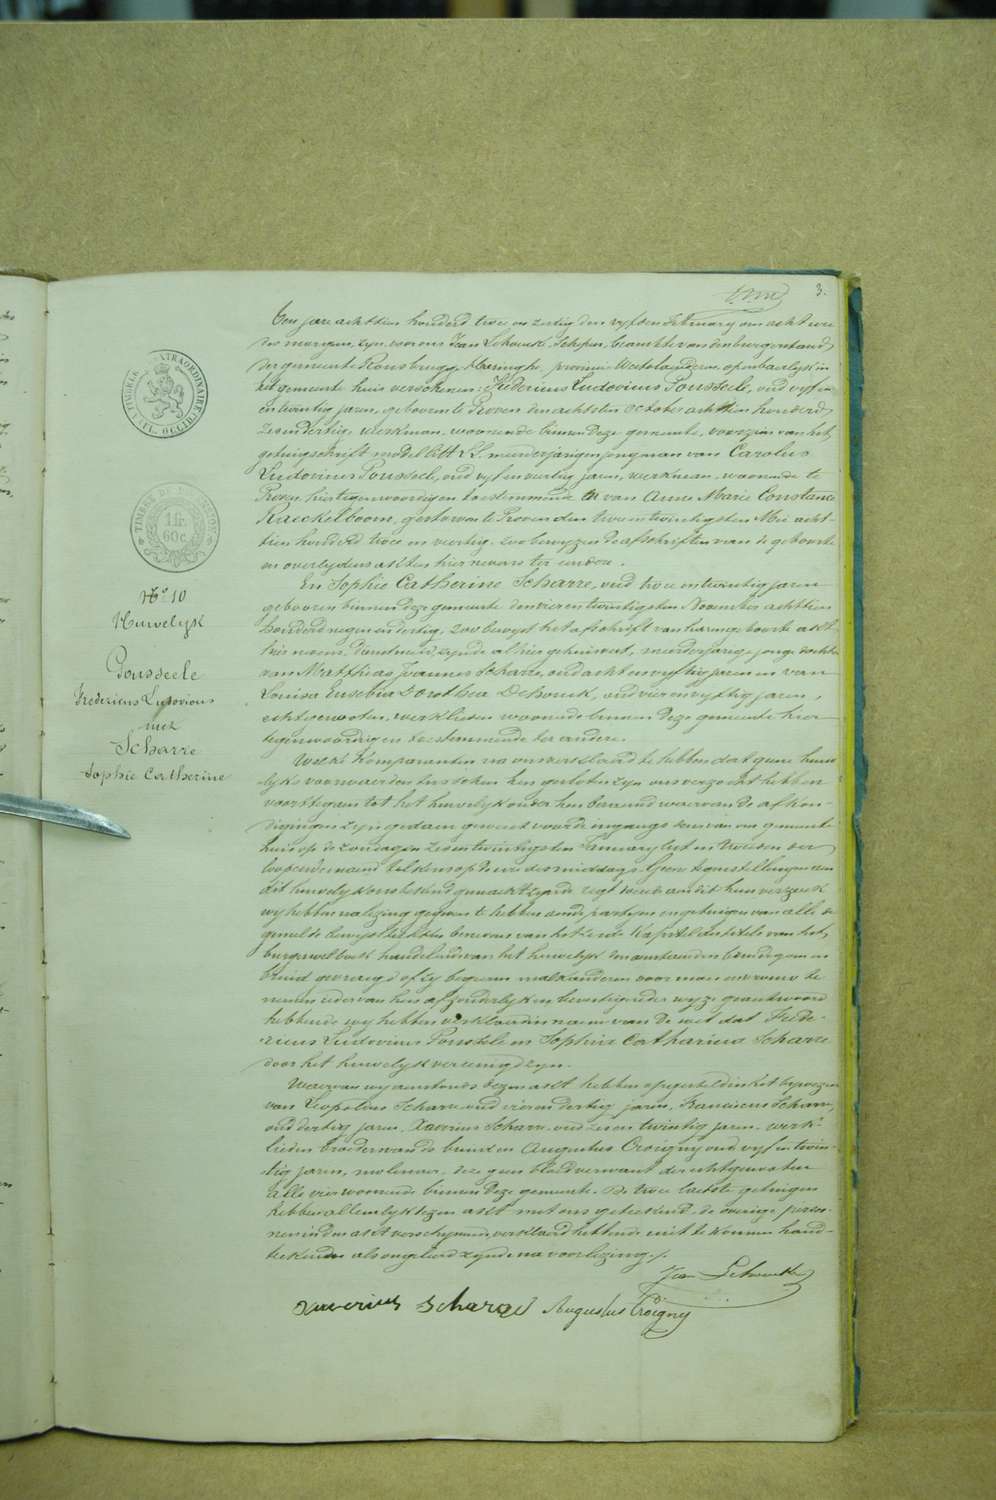 3.
Een jare achttien honderd twee en zestig den vyfden February om acht ure
des morgens, zyn voor ons Jean Schepen, beambte van den burgerstand
der gemeente Rousbrugge Haringhe, provincie Westvlaenderen, openbaerlyk in
het gemeente huis verschenen: Fredericus Ludovicus Pousseele, oud vyf en
en twintig jaren, geboren te Proven den achtsten October achttien honderd
zes en dertig, werkman, woonende binnen deze gemeente, voorzien van het
getuigschrift model litt. meerderjarigen jongman van Carolus
Ludovicus Pousseele, oud vyf en veertig jaren, werkman, woonende te
Proven, hier tegenwoordig en toestemmende en van Anne Marie Constance
Raeckelboom, gestorven te Proven den twee en twintigsten Mei acht-
tien honderd twee en veertig, zoo bewyzen de afschriften van de geboorte
en overlydens akten hier nevens ten einde.
En Sophie Catherine Scharre, oud twee en twintig jaren
geboren binnen deze gemeente den vier en twintigsten November achttien
honderd negen en dertig, zoo bewyst het afschrift van hare geboorte akt
hier nevens, zynde alhier gehuisvest, meerderjarige jonge dochter
van Matthias Joannes Scharre, oud acht en vyftig jaren en van
Louisa Eusebia Dorothea Deboick, oud vier en vyftig jaren,
echtgenooten, werklieden woonende binnen deze gemeente hier
tegenwoordig en toestemmende ten andere.
Welke komparenten na ons verklaard te hebben dat geene huwe-
lyks voorwaerden tusschen hen gesloten zyn ons verzocht hebben
voorttegaen tot het huwelyk onder hen beraemd waervan de afkon-
digingen zyn gedaen geweest voor de ingangs deur van ons gemeente
huis op de zondagen zes en twintigsten January lest en tweeden der
loopende maend telkens op de ure des middags. Geene tegenstellingen aen
dit huwelyk ons bekend gemaekt zynde regt doende aen dit hun verzoek
wy hebben na lezing gegeven te hebben aen de partyen en getuigen van alle de
gemelde bewysstukken benevens van het zesde kapittel des titels van het
burgerwetboek handelende van het huwelyk den aenstaenden bruidegom en
bruid gevraegd of zy begeren malkanderen voor man en vrouw te
nemen ieder van hen afzonderlyk en bevestigender wyze geantwoord
hebbende wy hebben verklaerd in naem van de wet dat Frede-
ricus Ludovicus Pousseele en Sophia Catharina Scharre
door het huwelyk vereenigd zyn.
Waervan wy aenstonds dezen akt hebben opgesteld in het bywezen
van Leopoldus Scharre oud vier en dertig jaren, Franciscus Scharre,
oud dertig jaren, Xaverius Scharre, oud zes en twintig jaren, werk-
lieden broeders van de bruid en Augustus Croigny oud vyf en twin-
tig jaren, molenaer, deze geen bloedverwant der echtgenooten
alle vier woonende binnen deze gemeente. De twee laetste getuigen
hebben alleenlyk dezen akt met ons geteekend, de overige perso-
nen in den akt verschynende, verklaerd hebbende niet te konnen hand-
teekenen als ongeleerd zynde na voorlezing.
Jean
Xaverius Scharre Augustus Croigny
TIMBRE EXTRAORDINAIRE
FL. OCCIDENT
TIMBRE DE DIMENSION
1 fr.
60 c.
N.º 10
Huwelyk
Pousseele
Fredericus Ludovicus
met
Scharre
Sophie Catherine